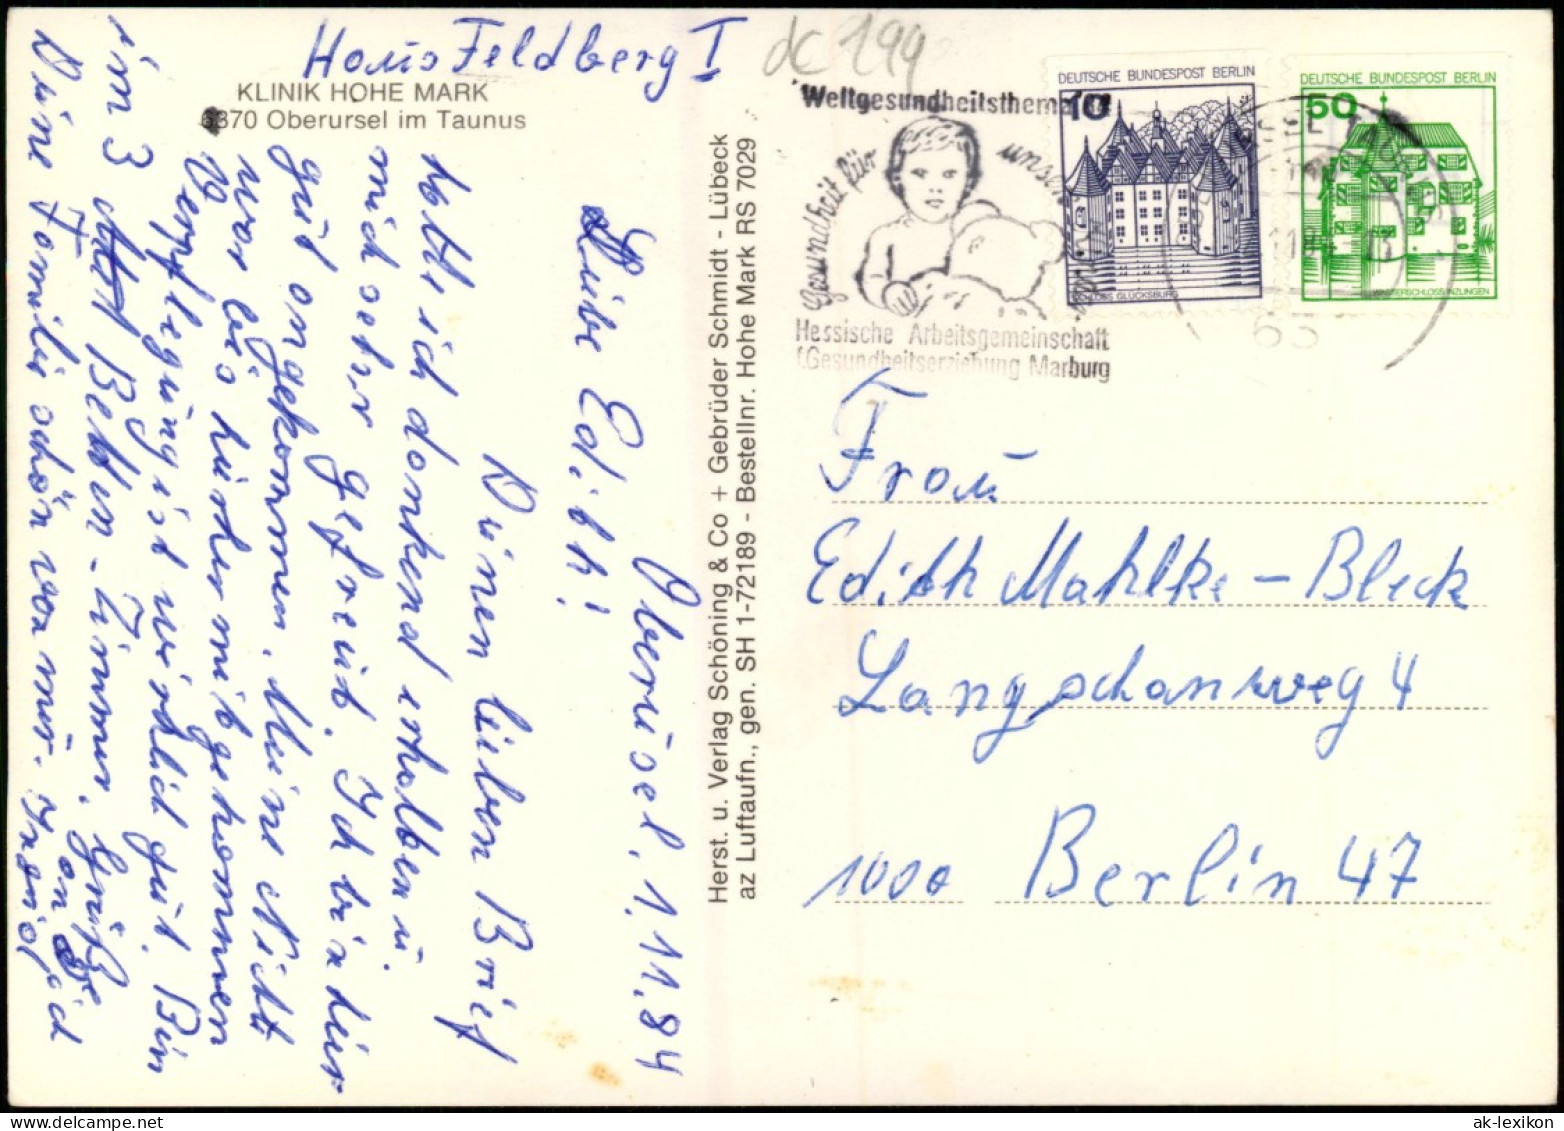 Haus Feldberg I
KLINIK HOHE MARK
6370 Oberursel im Taunus
Oberursel, 1.11.84
Liebe Edith!
Deinen lieben Brief
hatte ich dankend erhalten u.
mich sehr gefreut. Ich bin hier
gut angekommen. Meine Nichte
war bis hierher mitgekommen
Verpflegung ist wirklich gut. Bin
im 3 Betten-Zimmer. Grüße
an
Deine Familie schön von mir.
Herst. u. Verlag Schöning & Co + Gebrüder Schmidt - Lübeck
az Luftaufn., gen. SH 1-72189 - Bestellnr. Hohe Mark RS 7029
dc 199
Weltgesundheitsthema
Gesundheit für
unsere
Hessische Arbeitsgemeinschaft
f.Gesundheitserziehung Marburg
DEUTSCHE BUNDESPOST BERLIN
10
SCHLOSS GLÜCKSBURG
DEUTSCHE BUNDESPOST BERLIN
50
WASSERSCHLOSS INZLINGEN
Frau
Edith Mahlke-Bleck
Langschanweg 4
1000 Berlin 47
ak-lexikon